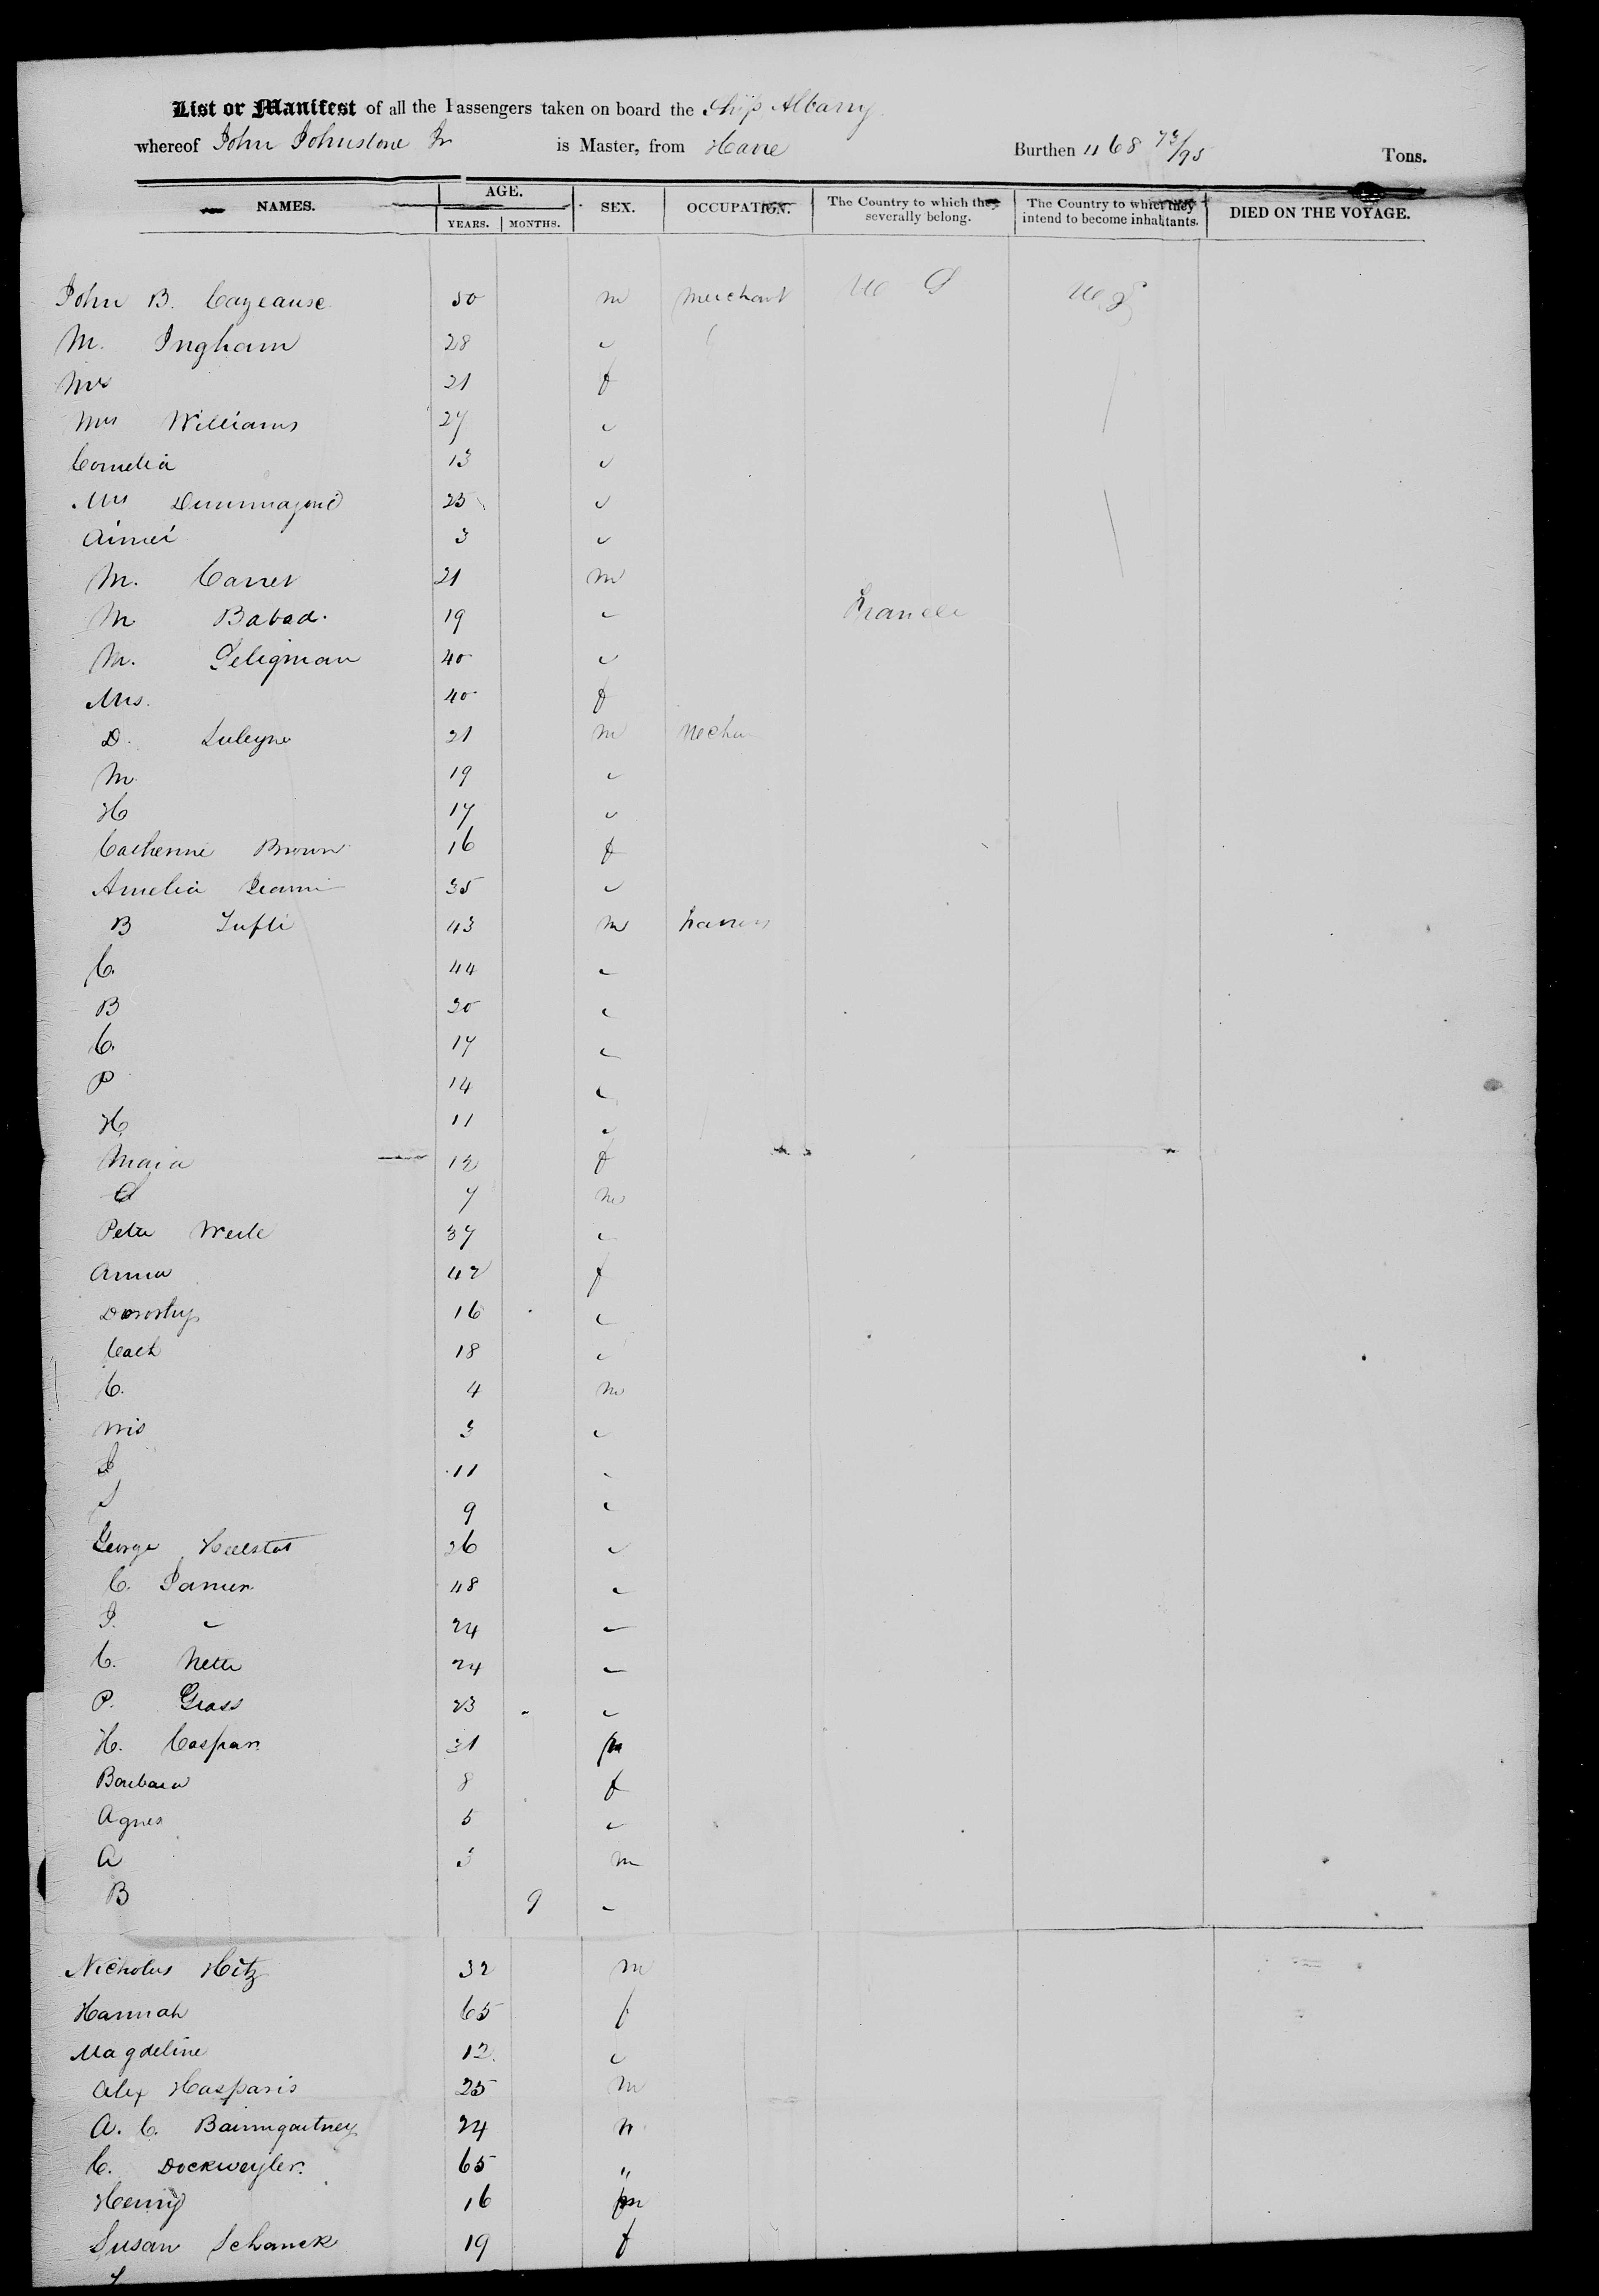 List or Manifest of all the Passengers taken on board the Ship Albany
whereof John Johnstone Jr is Master, from Havre Burthen 468 73/95 Tons.
NAMES. AGE. SEX. OCCUPATION. The Country to which they severally belong. The Country to which they intend to become inhabitants. DIED ON THE VOYAGE.
YEARS. MONTHS.
John B. 50 m Merchant U S U S
M. Ingham 28 "
Mrs 21 f
Mrs Williams 27 "
Cornelia 13 "
Mrs 25 "
Aimeé 3 "
M. Carrer 21 m
M Babad. 19 " France
M. Seligman 40 "
Mrs. 40 f
D. 21 m
M 19 "
H 17 "
Catherine Brown 16 f
Amelia 35 "
B Tufli 43 m
C. 44 "
B 20 "
C. 17 "
P 14 "
H 11 "
Maria 12 f
S 7 m
Peter Weile 37 "
Anna 42 f
Dorothy 16 "
Cath 18 "
C. 4 m
3 "
J 11 "
J 9 "
George 26 "
C. 48 "
J. " 24 "
C. Nette 24 "
P. Grass 23 "
H. Caspar. 31 m
Barbara 8 f
Agnes 5 "
A 3 m
B 9 "
Nicholas Hitz 32 m
Hannah 65 f
Magdeline 12. "
Alex Hasparis 25 m
A. C. Baumgartney 24 m
C. Dockweyler. 65 "
Henry 16 m
Susan Schanck 19 f